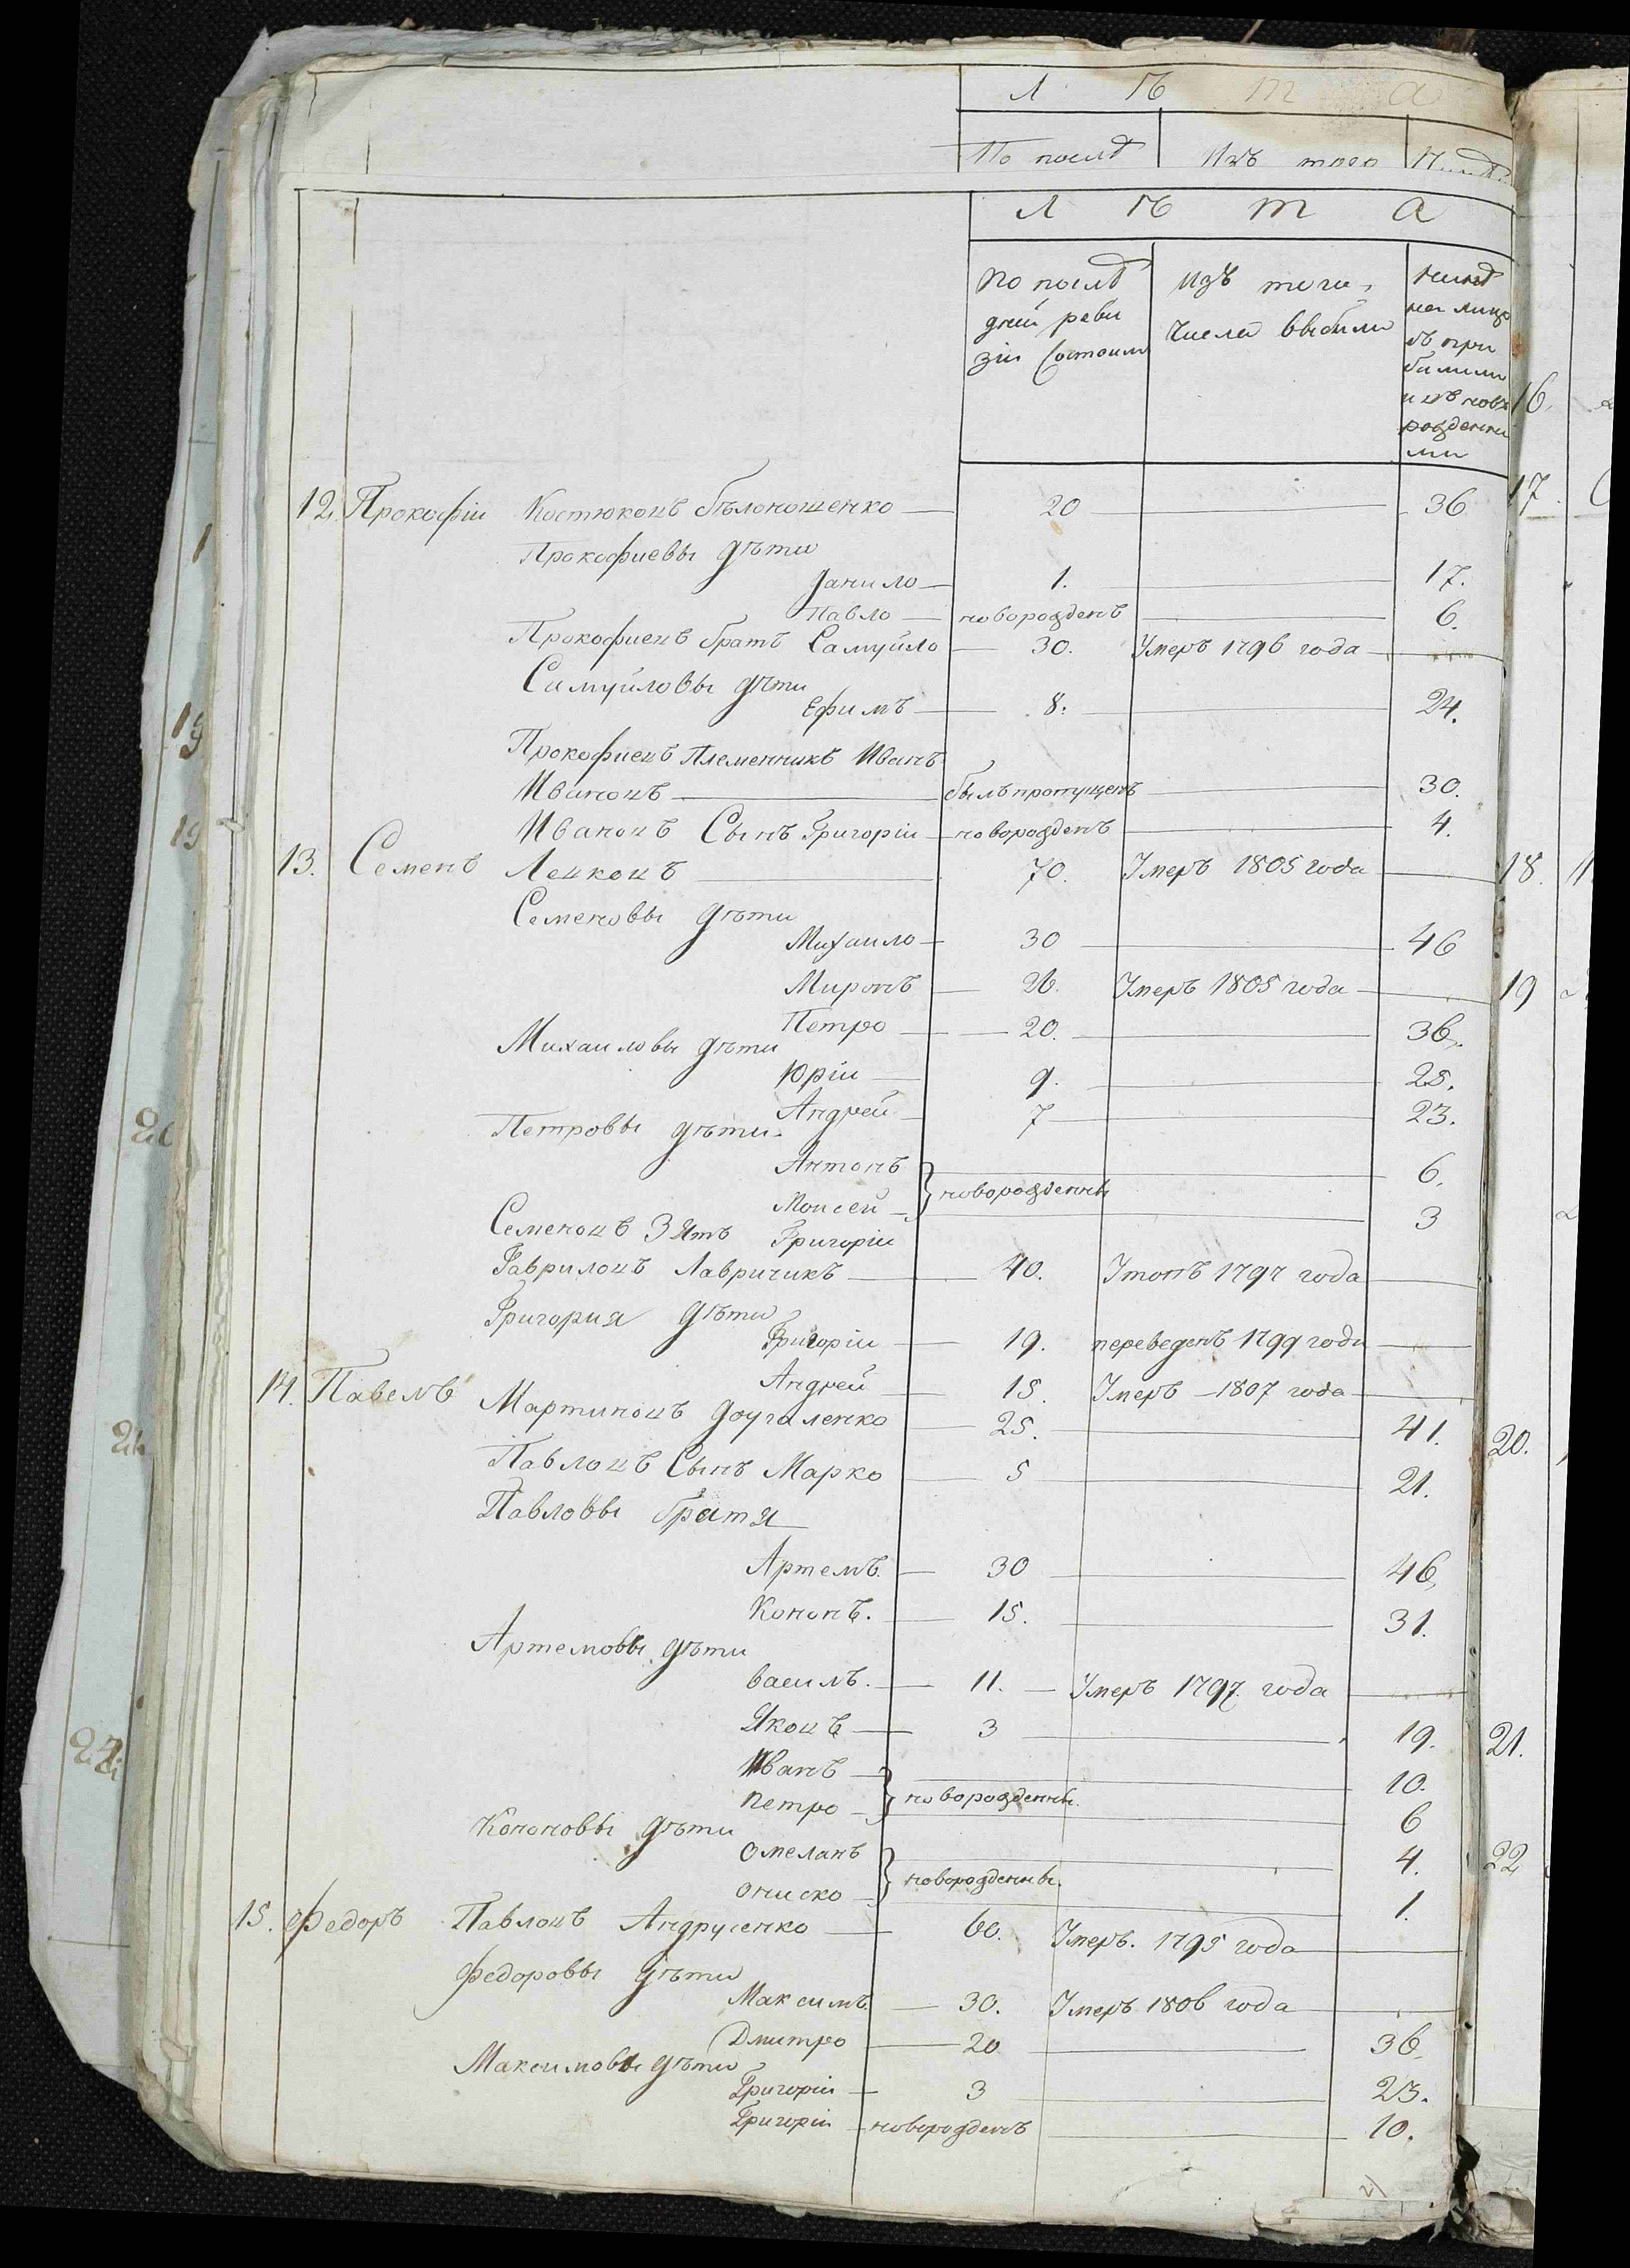 Л ѣ т а
По послѣ Изъ того Нынѣ
Л ѣ т а
По послѣ Изъ того Нынѣ
дней реви числа выбыли на лицо
зіи состоили съ при
былыми
и из ново
рожденны
ми
12. Прокофіи Костюковъ Бѣлоношенко 20 36
Прокофиевы дѣти
Данило 1. 17.
Павло новорожденъ 6.
Прокофиевъ братъ Самуйло 30. Умеръ 1796 года
Самуйловы дѣти
Ефимъ 8. 24.
Прокофиевъ племенникъ Иванъ
Ивановъ былъ пропущенъ 30.
Ивановъ Сынъ Григоріи новорожденъ 4.
13. Семенъ Лецковъ 70. Умеръ 1805 года
Семеновы дѣти
Михаило 30 46
Миронъ 26. Умеръ 1805 года
Петро 20. 36.
Михаиловы дѣти
Юріи 9. 25.
Андрей 7 23.
Петровы дѣти
Антонъ 6.
новорожденны
Моисей 3
Семеновъ Зять Григоріи
Гавриловъ Лавричикъ 40. Утопъ 1797 года
Григория дѣти
Григоріи 19. переведенъ 1799 года
Андрей 15. Умеръ 1807 года
14. Павелъ Мартиновъ Доугаленко 25. 41.
Павловъ Сынъ Марко 5 21.
Павловы братя
Артемъ 30 46.
Кононъ. 15. 31.
Артемовы дѣти
Василъ. 11. Умеръ 1797 года
Яковъ 3 19.
Иванъ 10.
новорожденны
Петро 6
Кононовы дѣти
Омеланъ 4.
новорожденны
Ониско 1.
15. Федоръ Павловъ Андрусенко 60. Умеръ. 1795 года
Федоровы дѣти
Максимъ 30. Умеръ 1806 года
Дмитро 20 36.
Максимовы дѣти
Григоріи 3 23.
Григоріи новорожденъ 10.
16.
17.
18.
19
20.
21.
22